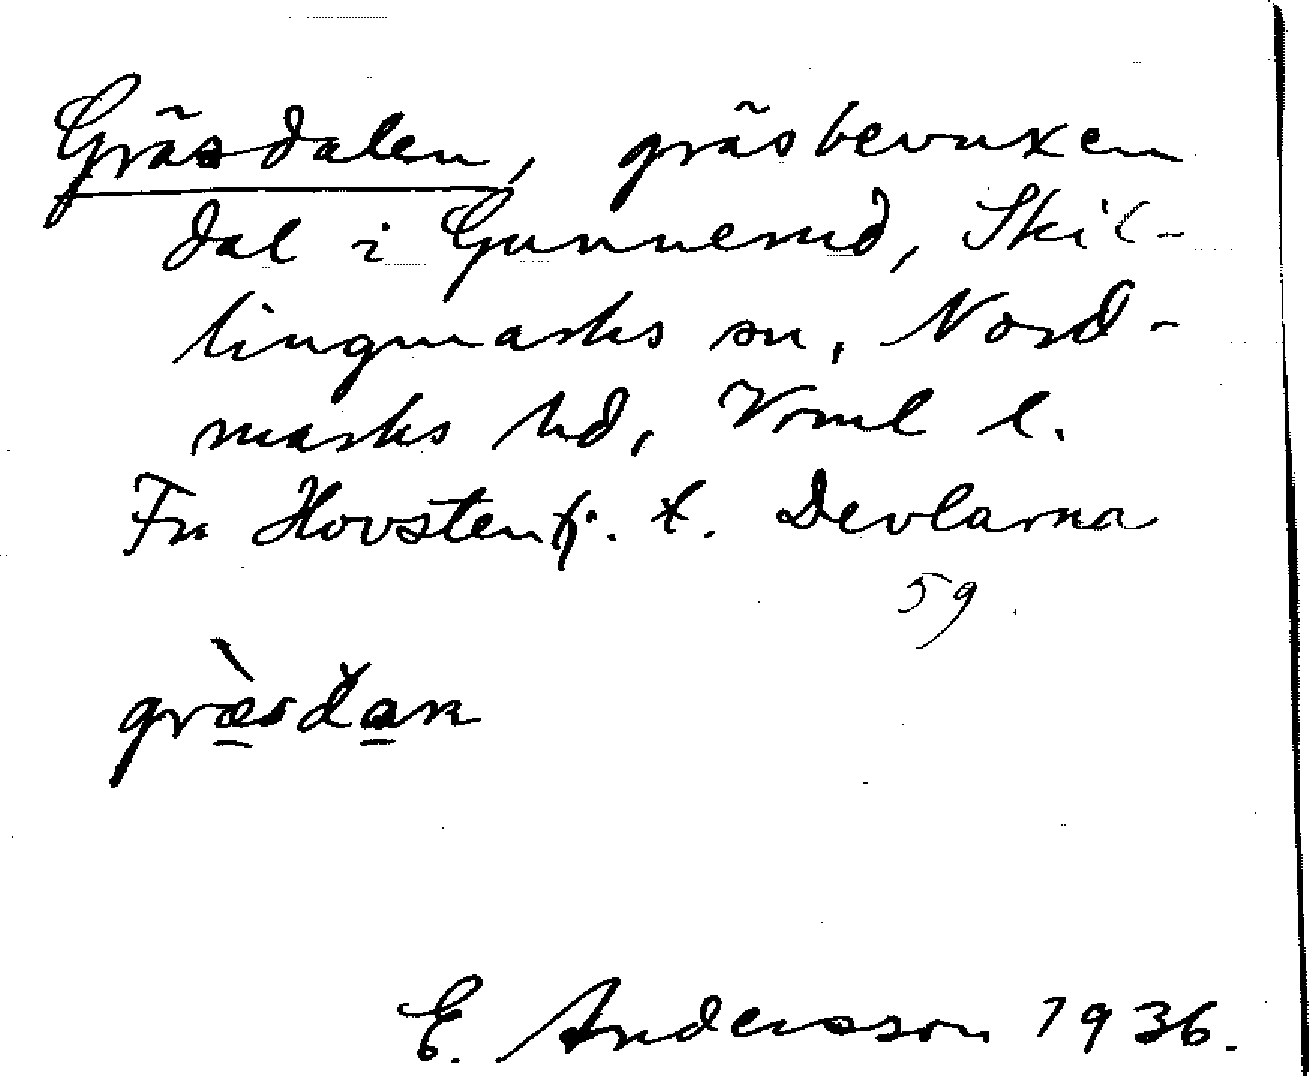 Gräsdalen, gräsbevuxen
dal i Gunnerud, Skil-
lingmarks sn, Nord-
marks hd, Vrml l.
Fr Hovstenfj. t. Devlarna
59
græ̀sdan
E. Andersson 1936.